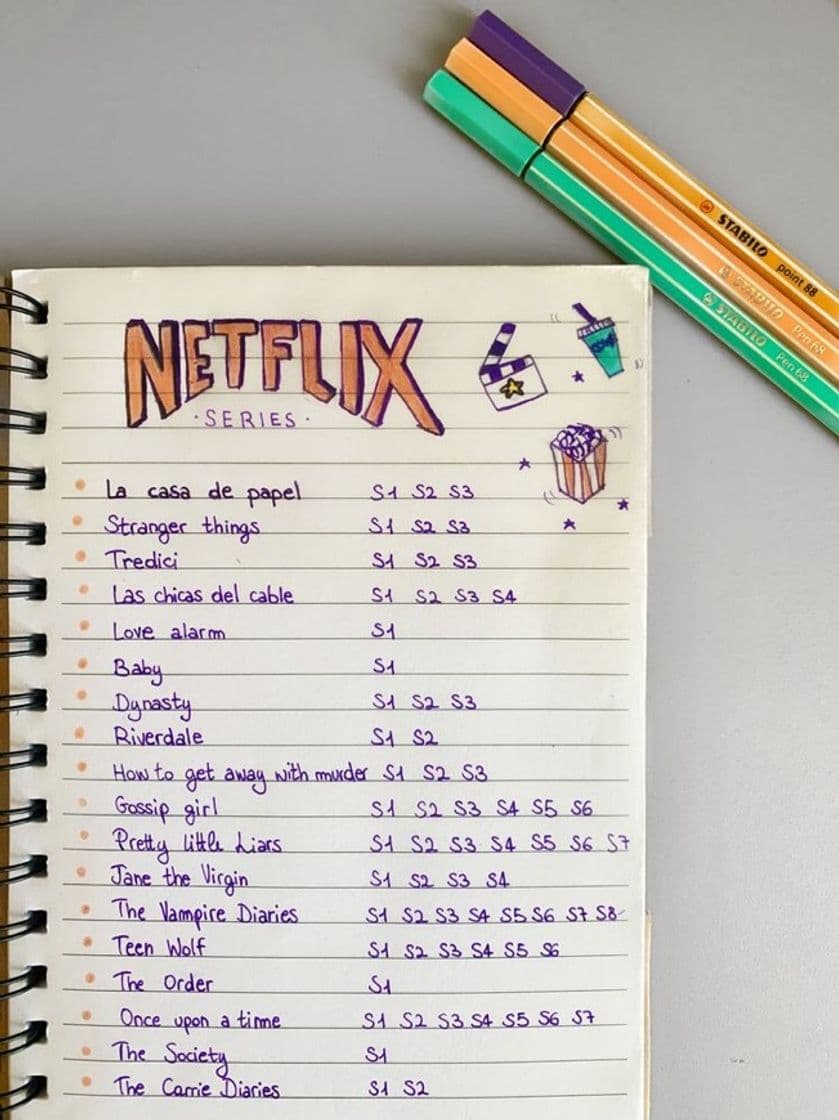 STABILO point 88
STABILO Pen 68
STABILO Pen 68
NETFLIX
· SERIES ·
La casa de papel S1 S2 S3
Stranger things S1 S2 S3
Tredici S1 S2 S3
Las chicas del cable S1 S2 S3 S4
Love alarm S1
Baby S1
Dynasty S1 S2 S3
Riverdale S1 S2
How to get away with murder S1 S2 S3
Gossip girl S1 S2 S3 S4 S5 S6
Pretty little Liars S1 S2 S3 S4 S5 S6 S7
Jane the Virgin S1 S2 S3 S4
The Vampire Diaries S1 S2 S3 S4 S5 S6 S7 S8
Teen Wolf S1 S2 S3 S4 S5 S6
The Order S1
Once upon a time S1 S2 S3 S4 S5 S6 S7
The Society S1
The Carrie Diaries S1 S2